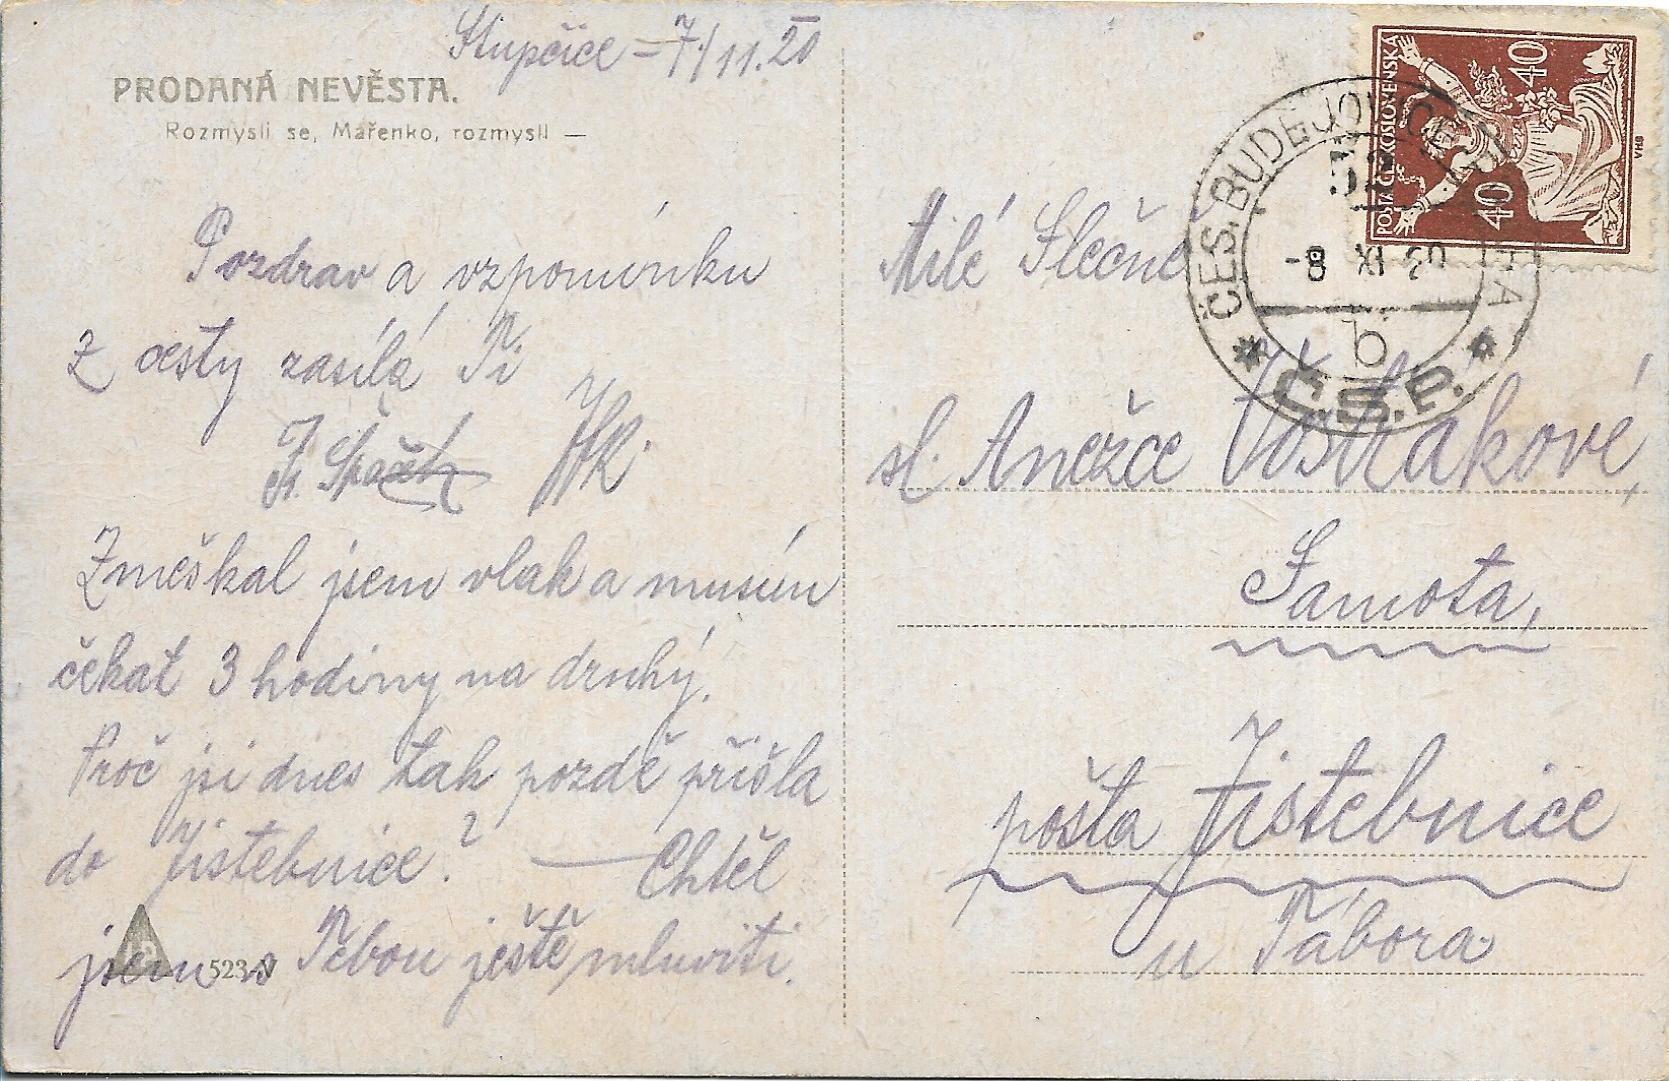 Stupčice – 7./11.20
PRODANÁ NEVĚSTA.
Rozmysli se, Mařenko, rozmysli —
Pozdrav a vzpomínku
z cesty zasílá Ti
Zmeškal jsem vlak a musím
čekat 3 hodiny na druhý.
Proč jsi dnes tak pozdě přišla
do Jistebnice? — Chtěl
jsem s Tebou ještě mluviti.
523-V
POŠTA ČESKOSLOVENSKÁ
40 40
VHB
ČES. BUDĚJOVICE
52
-8 XI 20
b
Č.S.P.
Milé Slečně
sl. Anežce Voštrákové,
Samota,
pošta Jistebnice
u Tábora